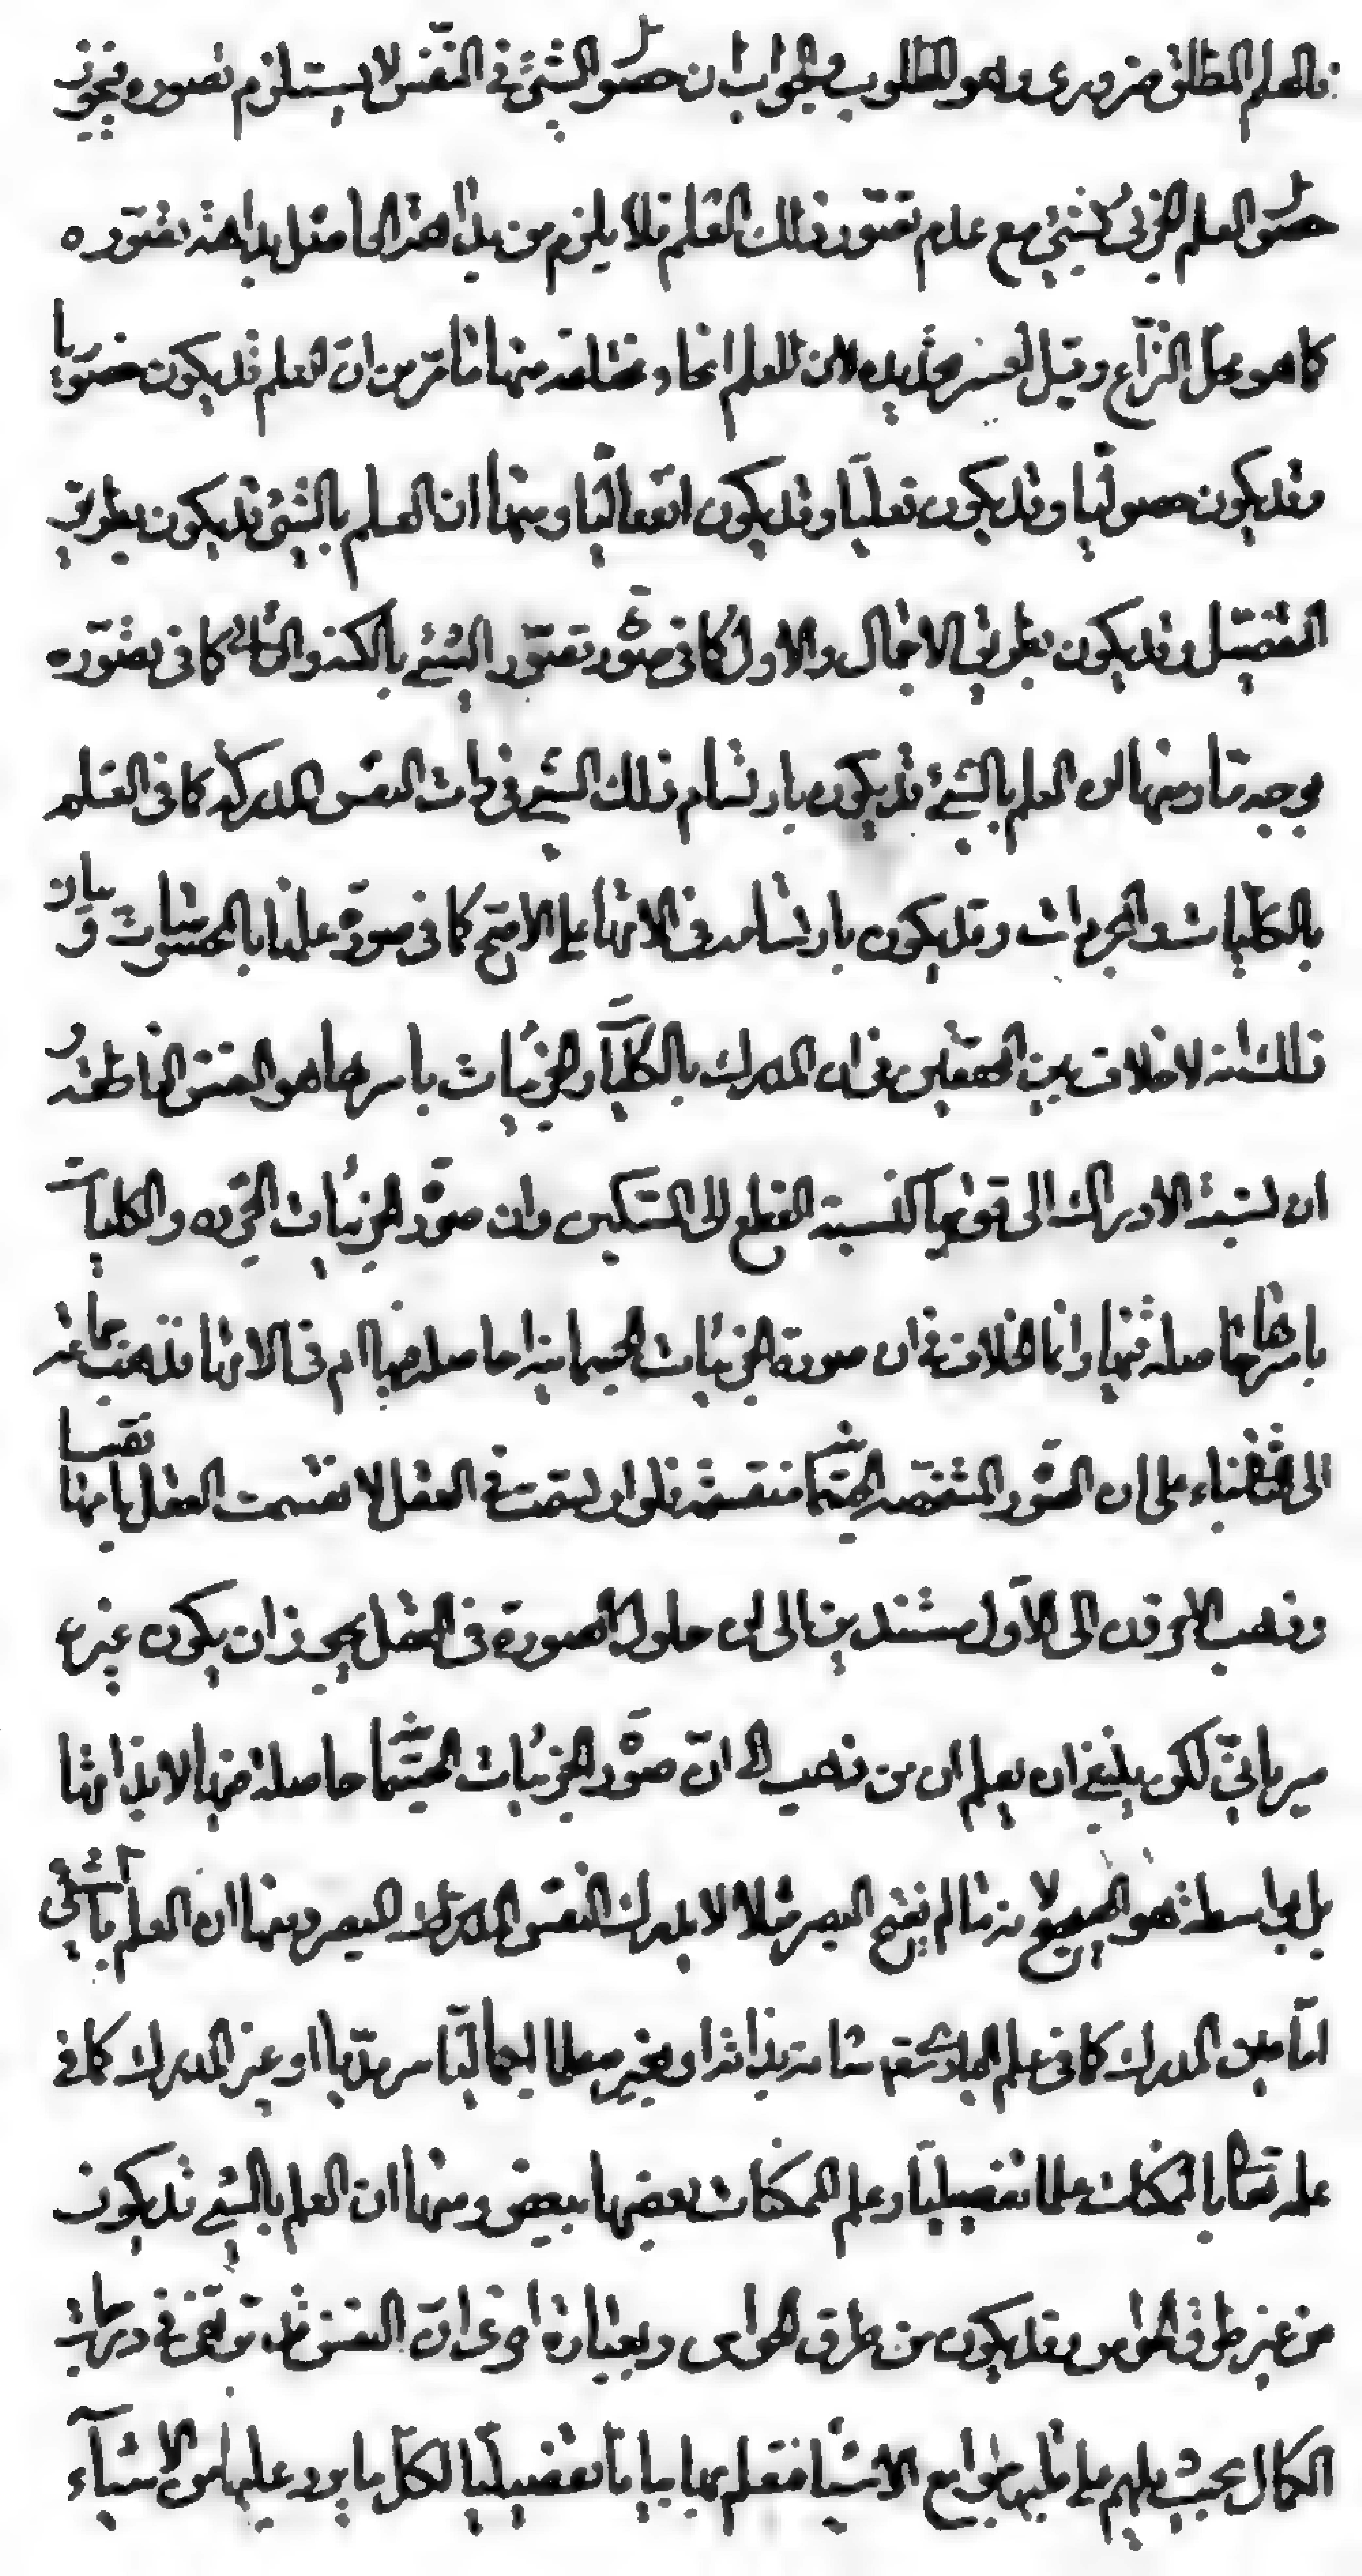 فالعلم المطلق ضروري وهو المطلوب والجواب ان حصول الشيء في النفس لا يستلزم تصوره فيجوز
حصول العلم الجزئي كشيء مع عدم تصور ذلك العلم فلا يلزم من بداهة الحاصل بداهة تصوره
كما هو محل النزاع وقيل لعسر تحديده لان للعلم انحاء مختلفة منها ما مر من ان العلم قد يكون حضوريا
وقد يكون حصوليا وقد يكون فعليا وقد يكون انفعاليا ومنها ان العلم بالشيء قد يكون بطريق
التفصيل وقد يكون بطريق الاجمال والاول كما في صورة تصور الشيء بالكنه والثاني كما في تصوره
بوجه ما ومنها ان العلم بالشيء قد يكون بارتسام ذلك الشيء في ذات النفس المدركة كما في العلم
بالكليات والمجردات وقد يكون بارتسامه في الاتها على الاصح كما في صورة علمنا بالمحسوسات وبيان
ذلك انه لا خلاف بين المحققين في ان المدرك بالكليات والجزئيات باسرها هو النفس الناطقة و
ان نسبة الادراك الى قواها كنسبة القطع الى السكين وان صور الجزئيات المجرده والكليات
باسرها حاصلة فيها وانما الخلاف في ان صورة الجزئيات الجسمانية احاصلة فيها ام في الاتها فذهب جماعة
الى بناء على ان الصور الشخصية الجسمانية منقسمة فلو ارتسمت في العقل لانقسمت العقل بانقسامها
وذهب الاخرون الى الاول مستندين الى ان حلول الصورة في العقل يجوز ان يكون غير
سرياني لكن ينبغي ان يعلم ان من ذهب الى ان صور الجزئيات الجسمانية حاصلة فيها لا بذاتها
بل بواسطة هو الصحيح لانه ما لم يفتح البصر مثلا لا يدرك النفس المدرك للبصر ومنها ان العلم بالشيء
اما عين المدرك كما في علم الباري تعم شانه بذاته او بغيره علما اجماليا سرمديا او غير المدرك كما في
علمه تعالى بالممكنات علما تفصيليا وعلم الممكنات بعضها ببعض ومنها ان العلم بالشيء قد يكون
من غير طرق الحواس وقد يكون من طرق الحواس وبعبارة اخرى ان النفس قد ترتقي في درجات
الكمال بحيث يلهم على قلبها جوامع الاشياء فتعلم بها بيانا تفصيليا لكل ما يرد عليها من الاشياء